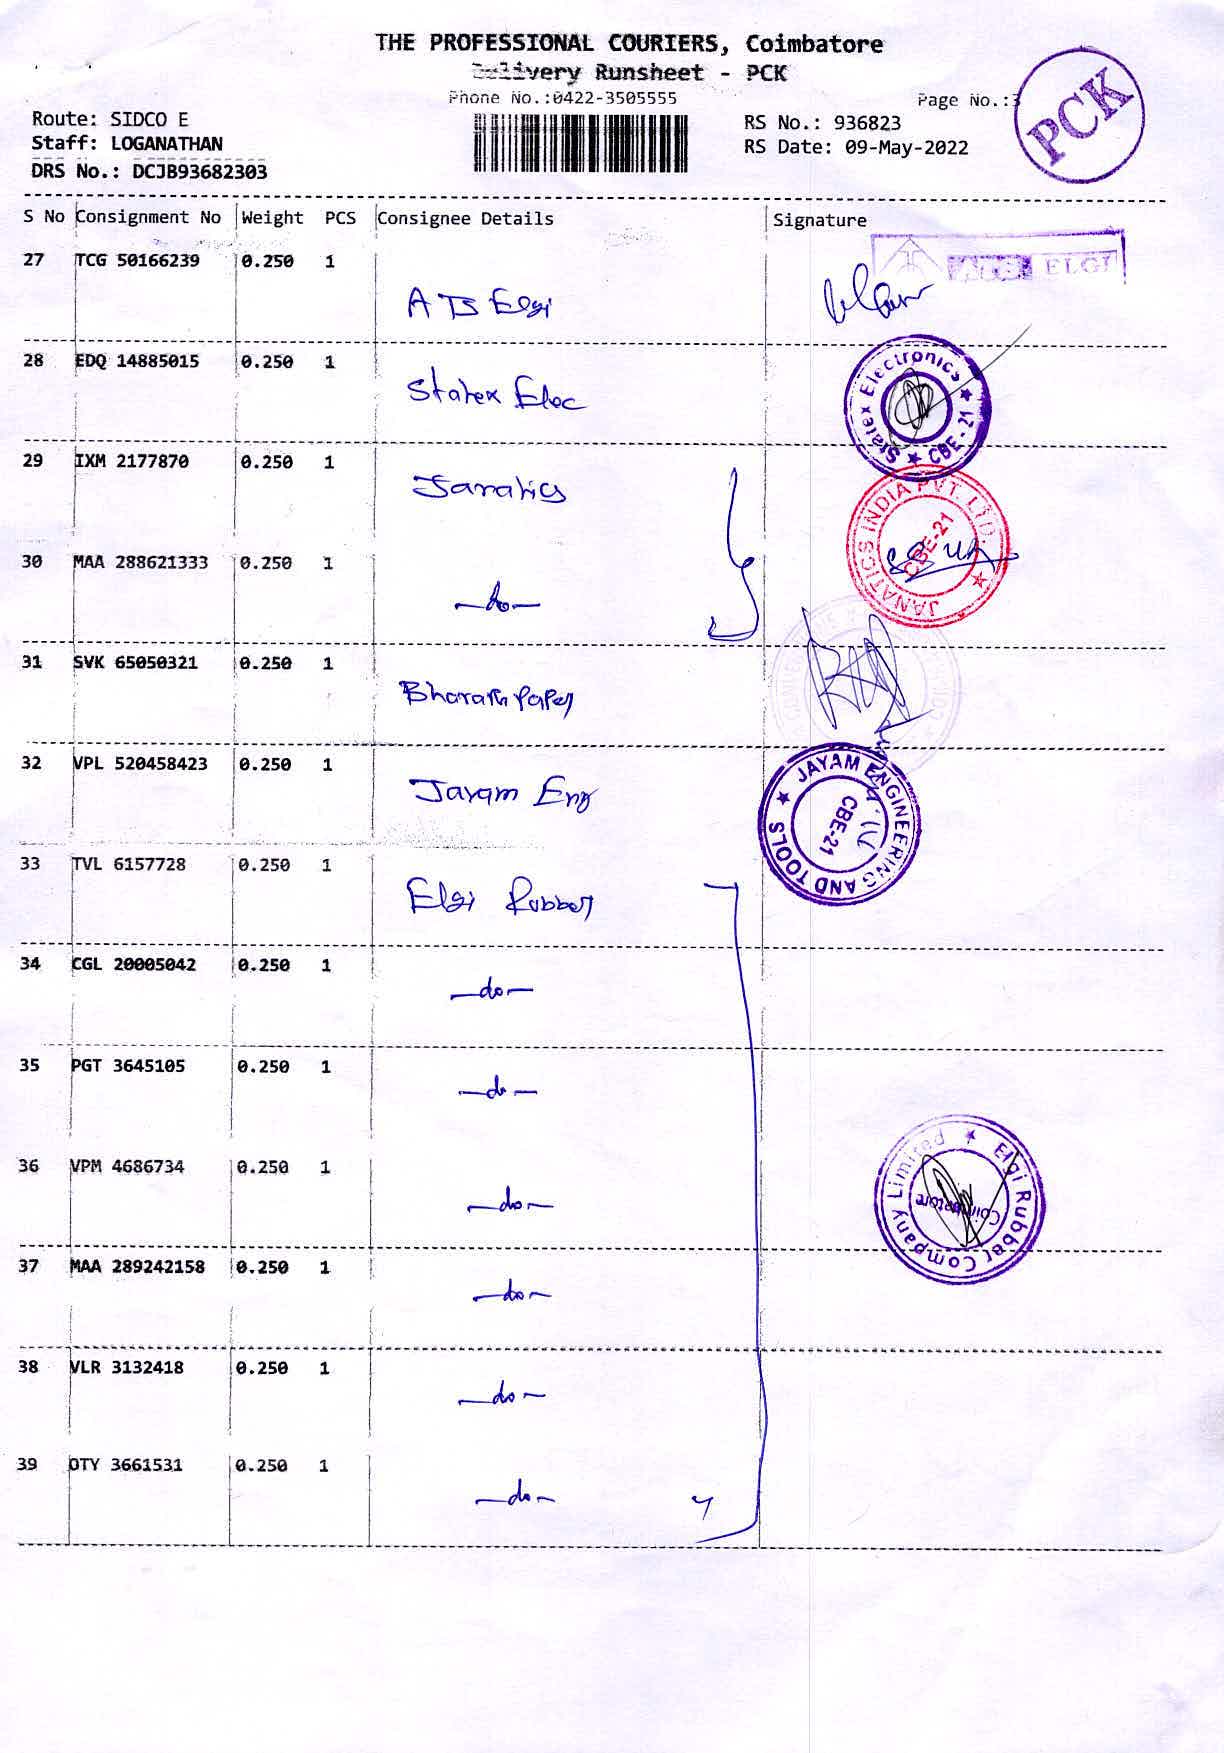 THE PROFESSIONAL COURIERS, Coimbatore
Delivery Runsheet - PCK
Phone No.:0422-3505555
Page No.:3
PCK
Route: SIDCO E
Staff: LOGANATHAN
DRS No.: DCJB93682303
RS No.: 936823
RS Date: 09-May-2022
S No Consignment No Weight PCS Consignee Details Signature
27 TCG 50166239 0.250 1
ATS Elgi
ATS ELGI
28 EDQ 14885015 0.250 1
Statex Elec
Statex Electronics ★ CBE - 21 ★
29 IXM 2177870 0.250 1
Janatics
JANATICS INDIA PVT. LTD. ★
CBE-21
30 MAA 288621333 0.250 1
-do-
31 SVK 65050321 0.250 1
Bharath Paper
32 VPL 520458423 0.250 1
Jayam Eng
★ JAYAM ENGINEERING AND TOOLS
CBE-21
33 TVL 6157728 0.250 1
Elgi Rubber
34 CGL 20005042 0.250 1
-do-
35 PGT 3645105 0.250 1
-do-
36 VPM 4686734 0.250 1
-do-
★ Elgi Rubber Company Limited
Coimbatore
37 MAA 289242158 0.250 1
-do-
38 VLR 3132418 0.250 1
-do-
39 OTY 3661531 0.250 1
-do-